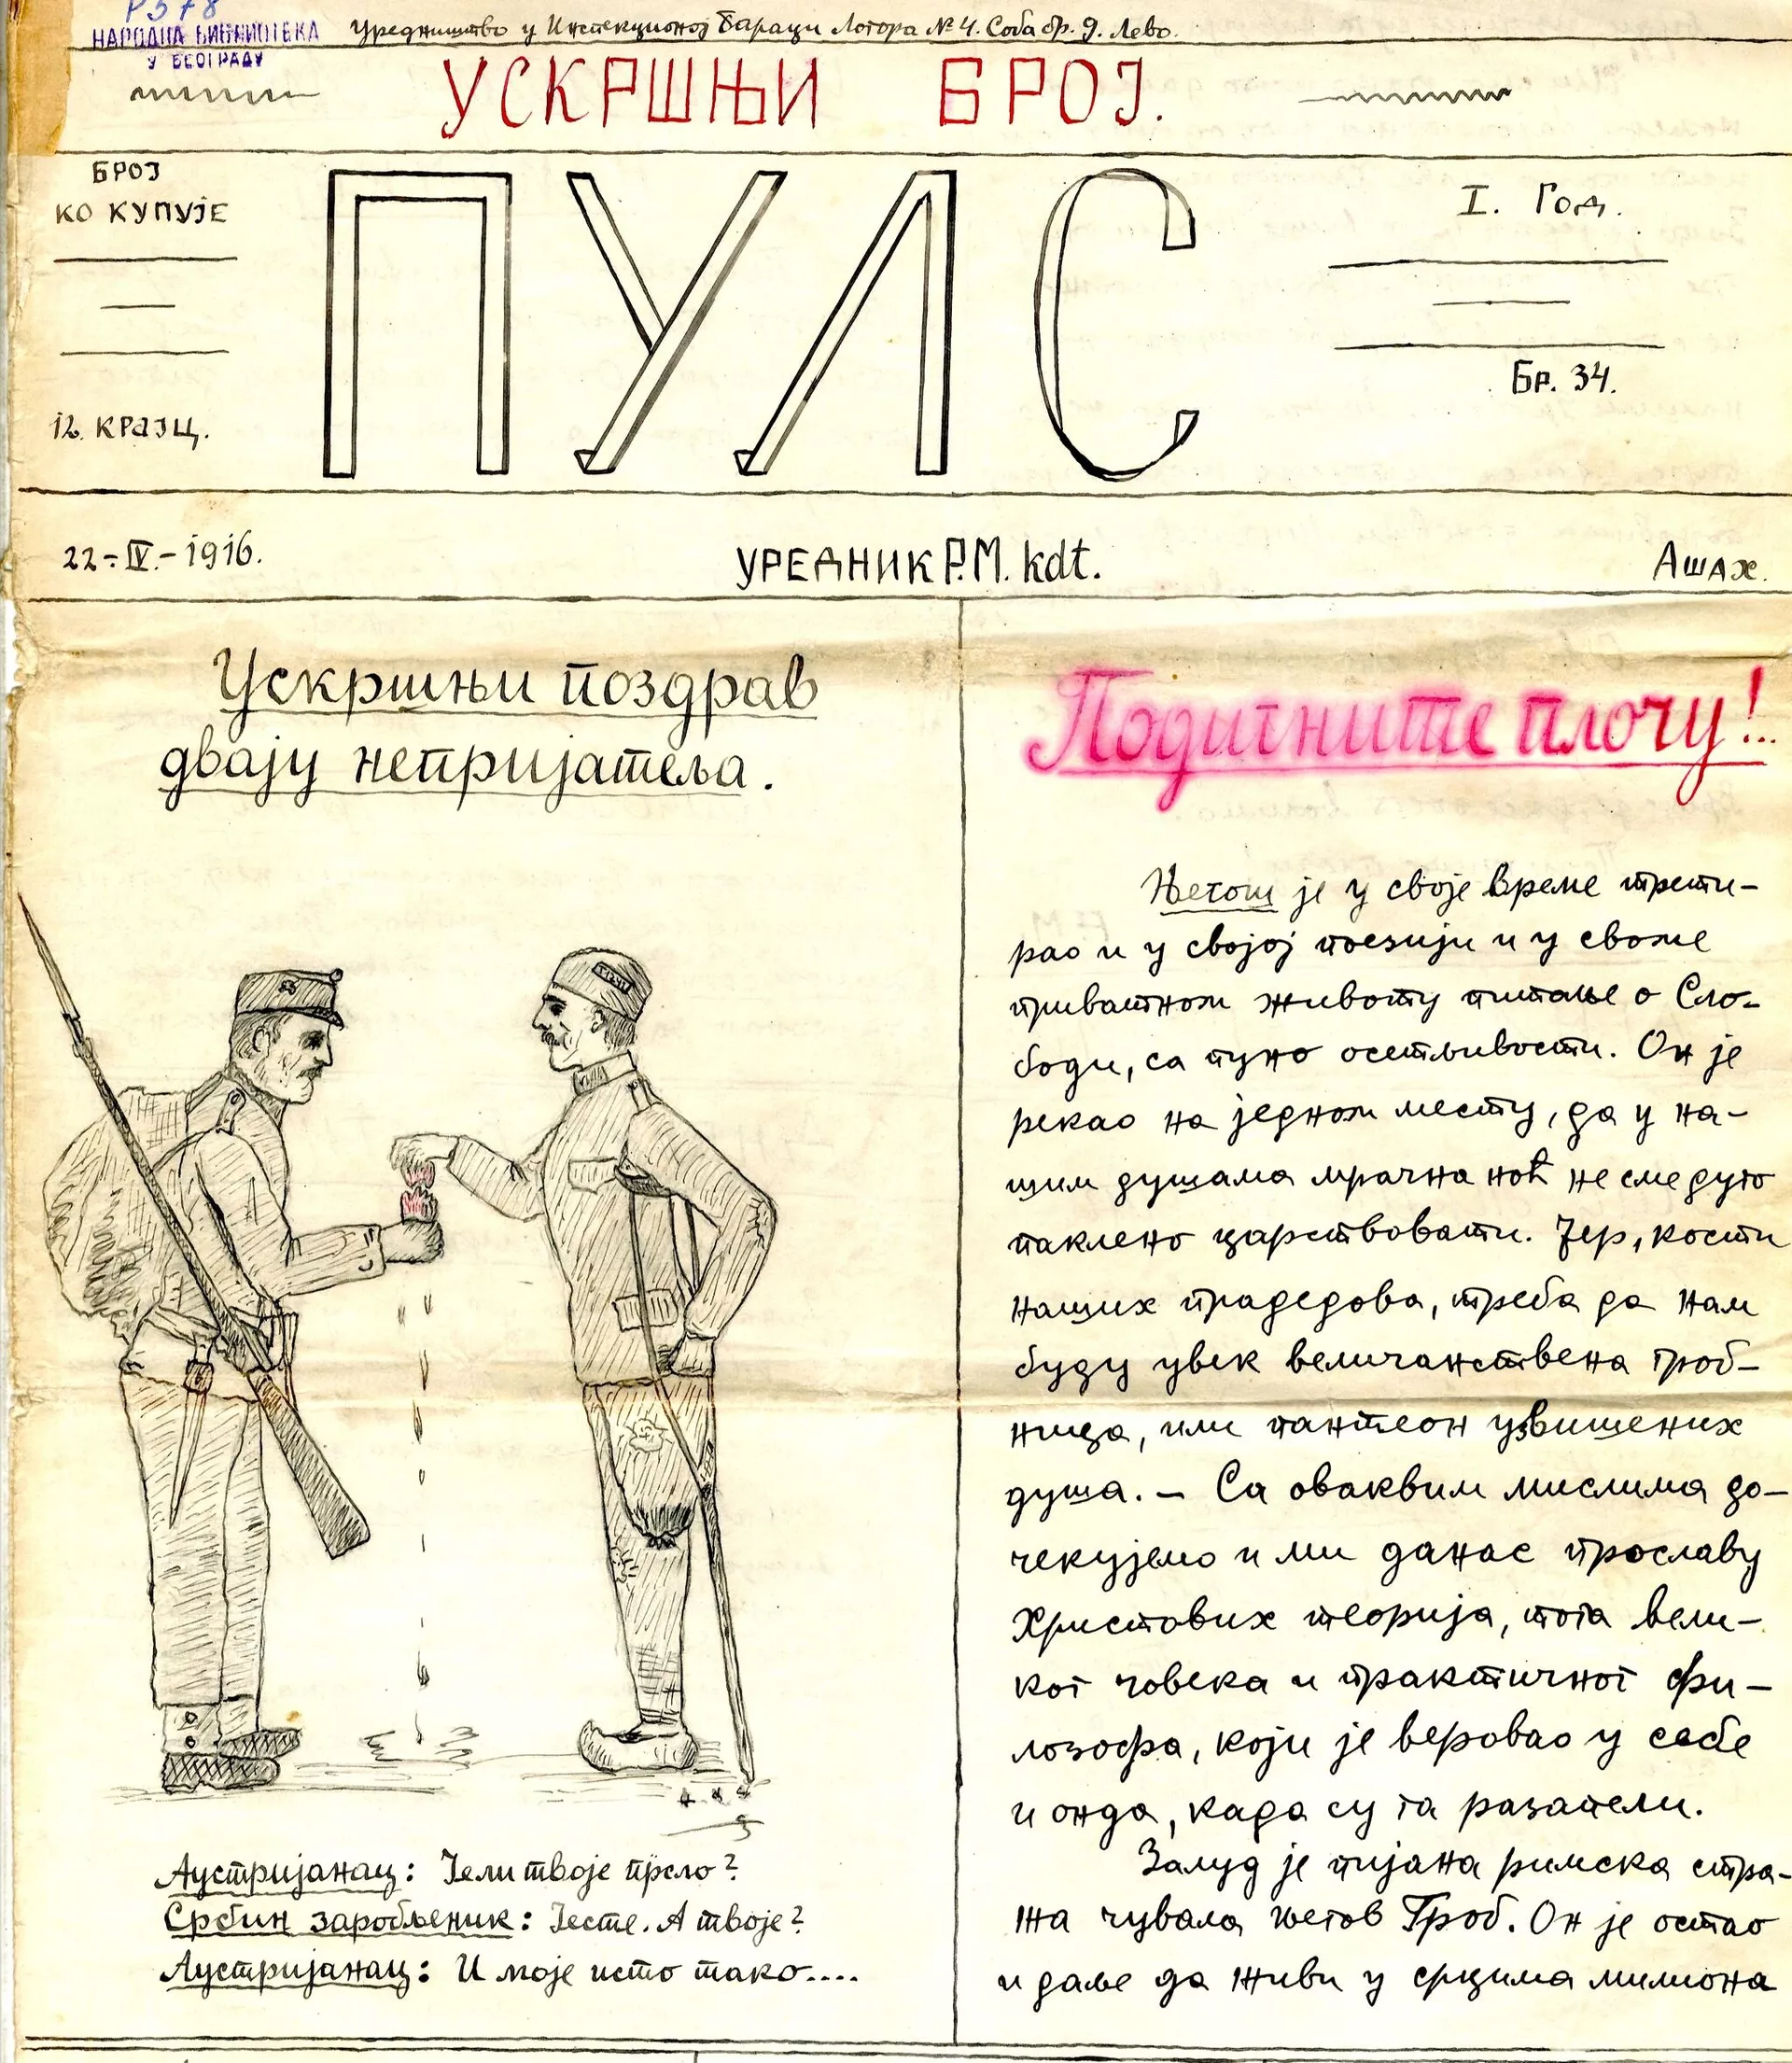 Р 578
НАРОДНА БИБЛИОТЕКА
У БЕОГРАДУ
Уредништво у Инспекционој Бараци Логора № 4. Соба бр. 9. Лево.
УСКРШЊИ БРОЈ.
БРОЈ
КО КУПУЈЕ
12. КРАЈЦ.
ПУЛС
I. Год.
Бр. 34.
22.-IV.-1916.
УРЕДНИК Р.М. kdt.
Ашах.
Ускршњи поздрав
двају непријатеља.
Аустријанац: Јели твоје прсло?
Србин заробљеник: Јесте. А твоје?
Аустријанац: И моје исто тако....
Подигните плочу!..
Његош је у своје време трети-
рао и у својој поезији и у своме
приватном животу питање о Сло-
боди, са пуно осетљивости. Он је
рекао на једном месту, да у на-
шим душама мрачна ноћ не сме дуго
паклено царствовати. Јер, кости
наших прадедова, треба да нам
буду увек величанствена гроб-
ница, или пантеон узвишених
душа. – Са оваквим мислима до-
чекујемо и ми данас прославу
Христових теорија, тога вели-
ког човека и практичног фи-
лозофа, који је веровао у себе
и онда, када су га разапели.
Залуд је пијана римска стра-
жа чувала његов Гроб. Он је остао
и даље да живи у срцима милиона